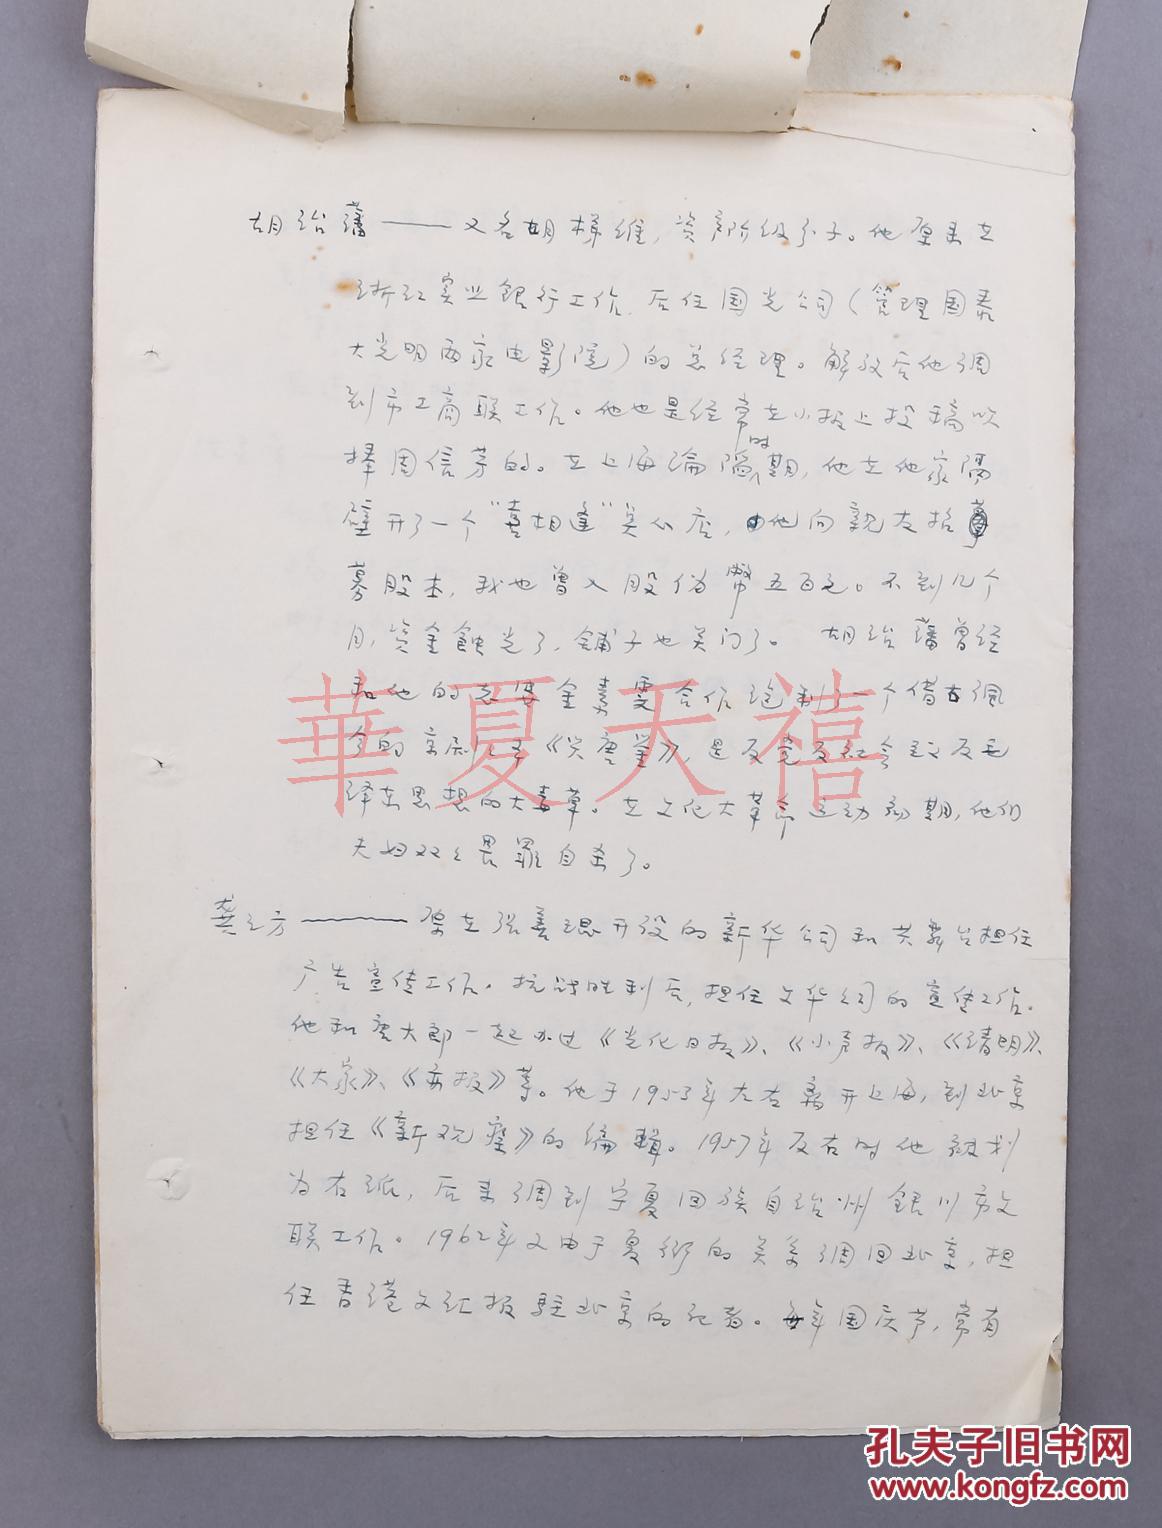 胡治藩——又名胡梯维，资产阶级分子。他原来在
浙江实业银行工作，后任国光公司（管理国泰
大光明两家电影院）的总经理。解放后他调
到市工商联工作。他也是经常在小报上投稿吹
捧周信芳的。在上海沦陷时期，他在他家隔
壁开了一个“喜相逢”店，他向亲友招
募股本，我也曾入股伪币五百元。不到几个
月，资金蚀光了，铺子也关门了。胡治藩曾经
和他的老婆金素雯合作炮制了一个借古讽
今的京剧《哭唐鉴》，是反党反社会主义反毛
泽东思想的大毒草。在文化大革命运动初期，他们
夫妇双双畏罪自杀了。
龚之方——原在张善琨开设的新华公司和共舞台担任
广告宣传工作。抗战胜利后，担任文华公司的宣传工作。
他和唐大郎一起办过《光化日报》、《小声报》、《清明》、
《大家》、《亦报》等。他于1953年左右离开上海，到北京
担任《新观察》的编辑。1957年反右时他被划
为右派，后来调到宁夏回族自治州银川市文
联工作。1962年又由于夏衍的关系调回北京，担
任香港文汇报驻北京的记者。每年国庆节，常有
華夏天禧
孔夫子旧书网
www.kongfz.com